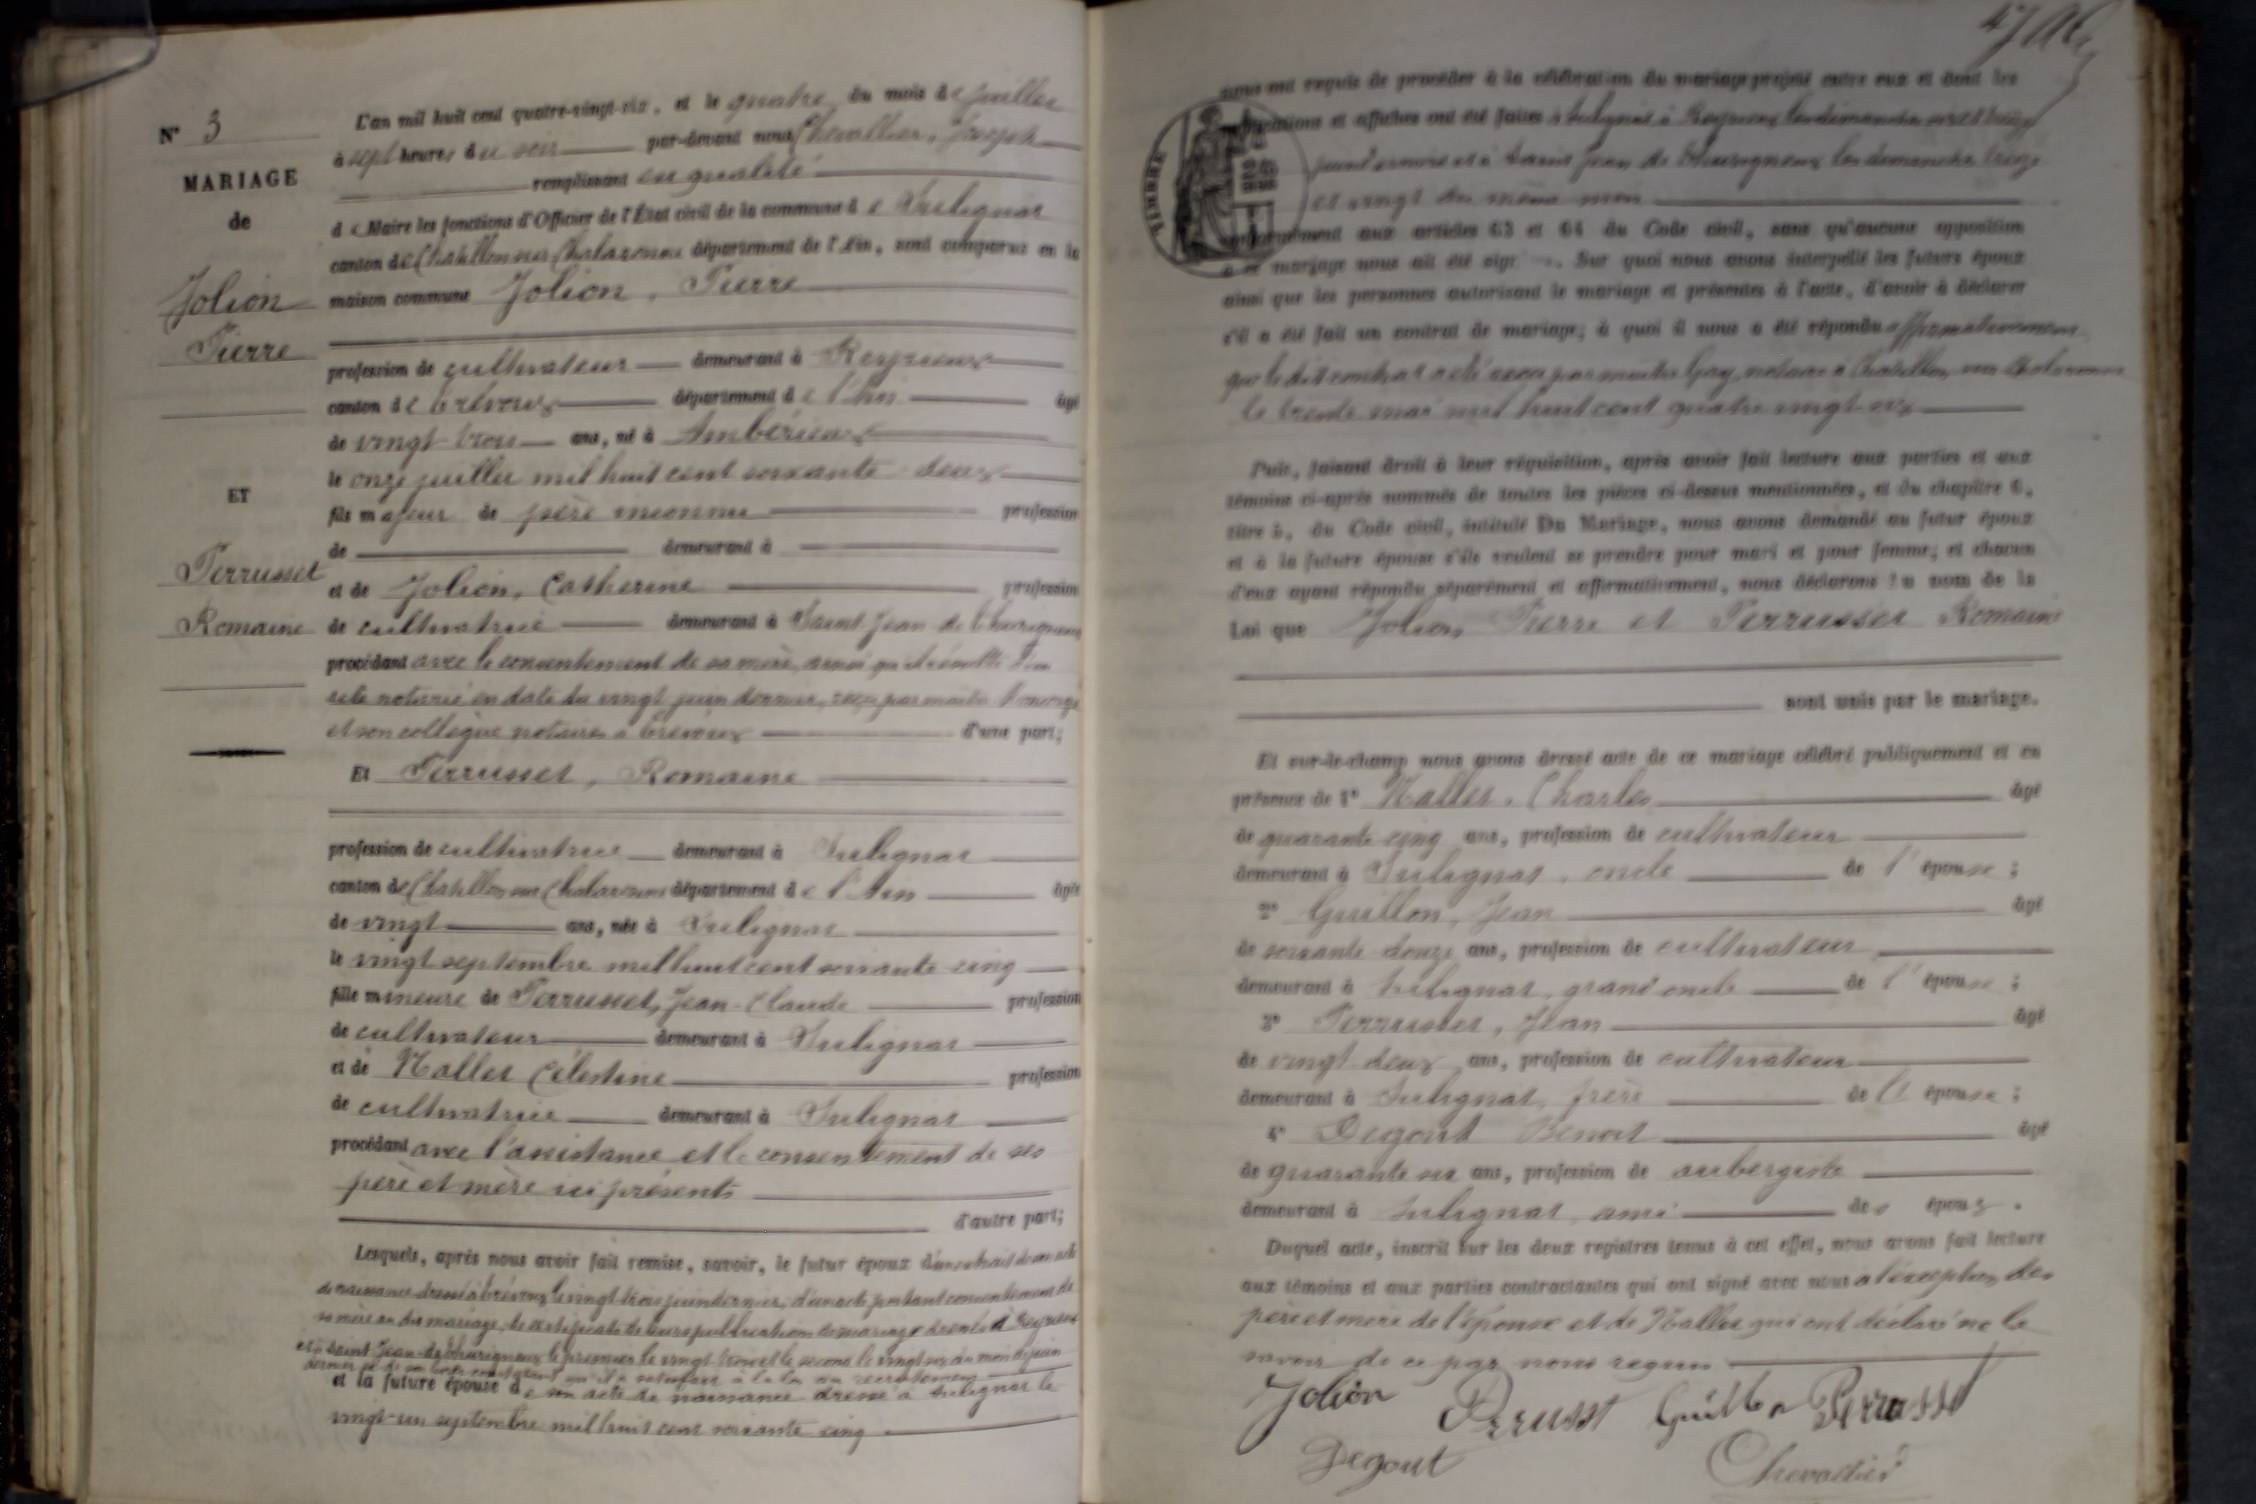 N° 3
MARIAGE
de
Jolion
Pierre
ET
Perrusset
Romaine
L'an mil huit cent quatre-vingt-six, et le quatre du mois de juillet
à sept heures du soir par-devant nous Chevallier, Joseph
remplissant en qualité
de Maire les fonctions d'Officier de l'État civil de la commune de Sulignat
canton de Châtillon sur Chalaronne département de l'Ain, sont comparus en la
maison commune Jolion, Pierre
profession de cultivateur demeurant à Reyrieux
canton de Trévoux département de l'Ain âgé
de vingt-trois ans, né à Ambérieux
le onze juillet mil huit cent soixante-deux
fils majeur de père inconnu profession
de demeurant à
et de Jolion, Catherine profession
de cultivatrice demeurant à Saint Jean de Thurigneux
procédant avec le consentement de sa mère, ainsi qu'il résulte d'un
acte notarié en date du vingt juin dernier, reçu par maître
et son collègue notaires à Trévoux d'une part;
Et Perrusset, Romaine
profession de cultivatrice demeurant à Sulignat
canton de Châtillon sur Chalaronne département de l'Ain âgée
de vingt ans, née à Sulignat
le vingt septembre mil huit cent soixante cinq
fille mineure de Perrusset, Jean-Claude profession
de cultivateur demeurant à Sulignat
et de Nallet Célestine profession
de cultivatrice demeurant à Sulignat
procédant avec l'assistance et le consentement de ses
père et mère ici présents
d'autre part;
Lesquels, après nous avoir fait remise, savoir, le futur époux d'un extrait de son acte
de naissance dressé à Trévoux le vingt-trois juin dernier, d'un acte portant consentement de
sa mère au dit mariage, de certificats de leurs publications de mariage dressés à Reyrieux
et à Saint Jean-de-Thurigneux le premier le vingt trois et le second le vingt six du mois de juin
dernier et de constatant qu'il a satisfait à la loi du recrutement
et la future épouse de son acte de naissance dressé à Sulignat le
vingt-un septembre mil huit cent soixante cinq
TIMBRE
nous ont requis de procéder à la célébration du mariage projeté entre eux et dont les
publications et affiches ont été faites à Sulignat, à Reyrieux les dimanches six et treize
juin dernier et à Saint Jean de Thurigneux les dimanches treize
et vingt du même mois
conformément aux articles 63 et 64 du Code civil, sans qu'aucune opposition
à ce mariage nous ait été sign Sur quoi nous avons interpellé les futurs époux
ainsi que les personnes autorisant le mariage et présentes à l'acte, d'avoir à déclarer
s'il a été fait un contrat de mariage; à quoi il nous a été répondu affirmativement
que le dit contrat a été reçu par maître Gay, notaire à Châtillon sur Chalaronne
le trente mai mil huit cent quatre vingt-six
Puis, faisant droit à leur réquisition, après avoir fait lecture aux parties et aux
témoins ci-après nommés de toutes les pièces ci-dessus mentionnées, et du chapitre 6,
titre 5, du Code civil, intitulé Du Mariage, nous avons demandé au futur époux
et à la future épouse s'ils veulent se prendre pour mari et pour femme; et chacun
d'eux ayant répondu séparément et affirmativement, nous déclarons au nom de la
Loi que Jolion, Pierre et Perrusset Romaine
sont unis par le mariage.
Et sur-le-champ nous avons dressé acte de ce mariage célébré publiquement et en
présence de 1° Nallet, Charles âgé
de quarante-cinq ans, profession de cultivateur
demeurant à Sulignat, oncle de l'épouse;
2° Guillon, Jean âgé
de soixante-douze ans, profession de cultivateur
demeurant à Sulignat, grand oncle de l'épouse;
3° Perrusset, Jean âgé
de vingt-deux ans, profession de cultivateur
demeurant à Sulignat, frère de l'épouse;
4° Degout Benoit âgé
de quarante six ans, profession de aubergiste
demeurant à Sulignat, ami des époux.
Duquel acte, inscrit sur les deux registres tenus à cet effet, nous avons fait lecture
aux témoins et aux parties contractantes qui ont signé avec nous à l'exception des
père et mère de l'épouse et de Nallet qui ont déclaré ne le
savoir de ce par nous requis
Jolion Perrusset Guillon Perrusset
Degout Chevallier